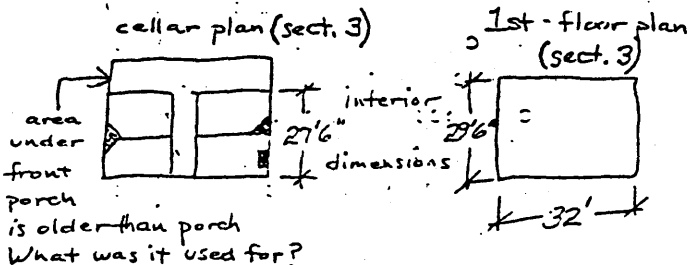 cellar plan (sect. 3)
1st-floor plan
(sect. 3)
area
under
front
porch
is older than porch
What was it used for?
27'6"
interior
dimensions
29'6"
32'